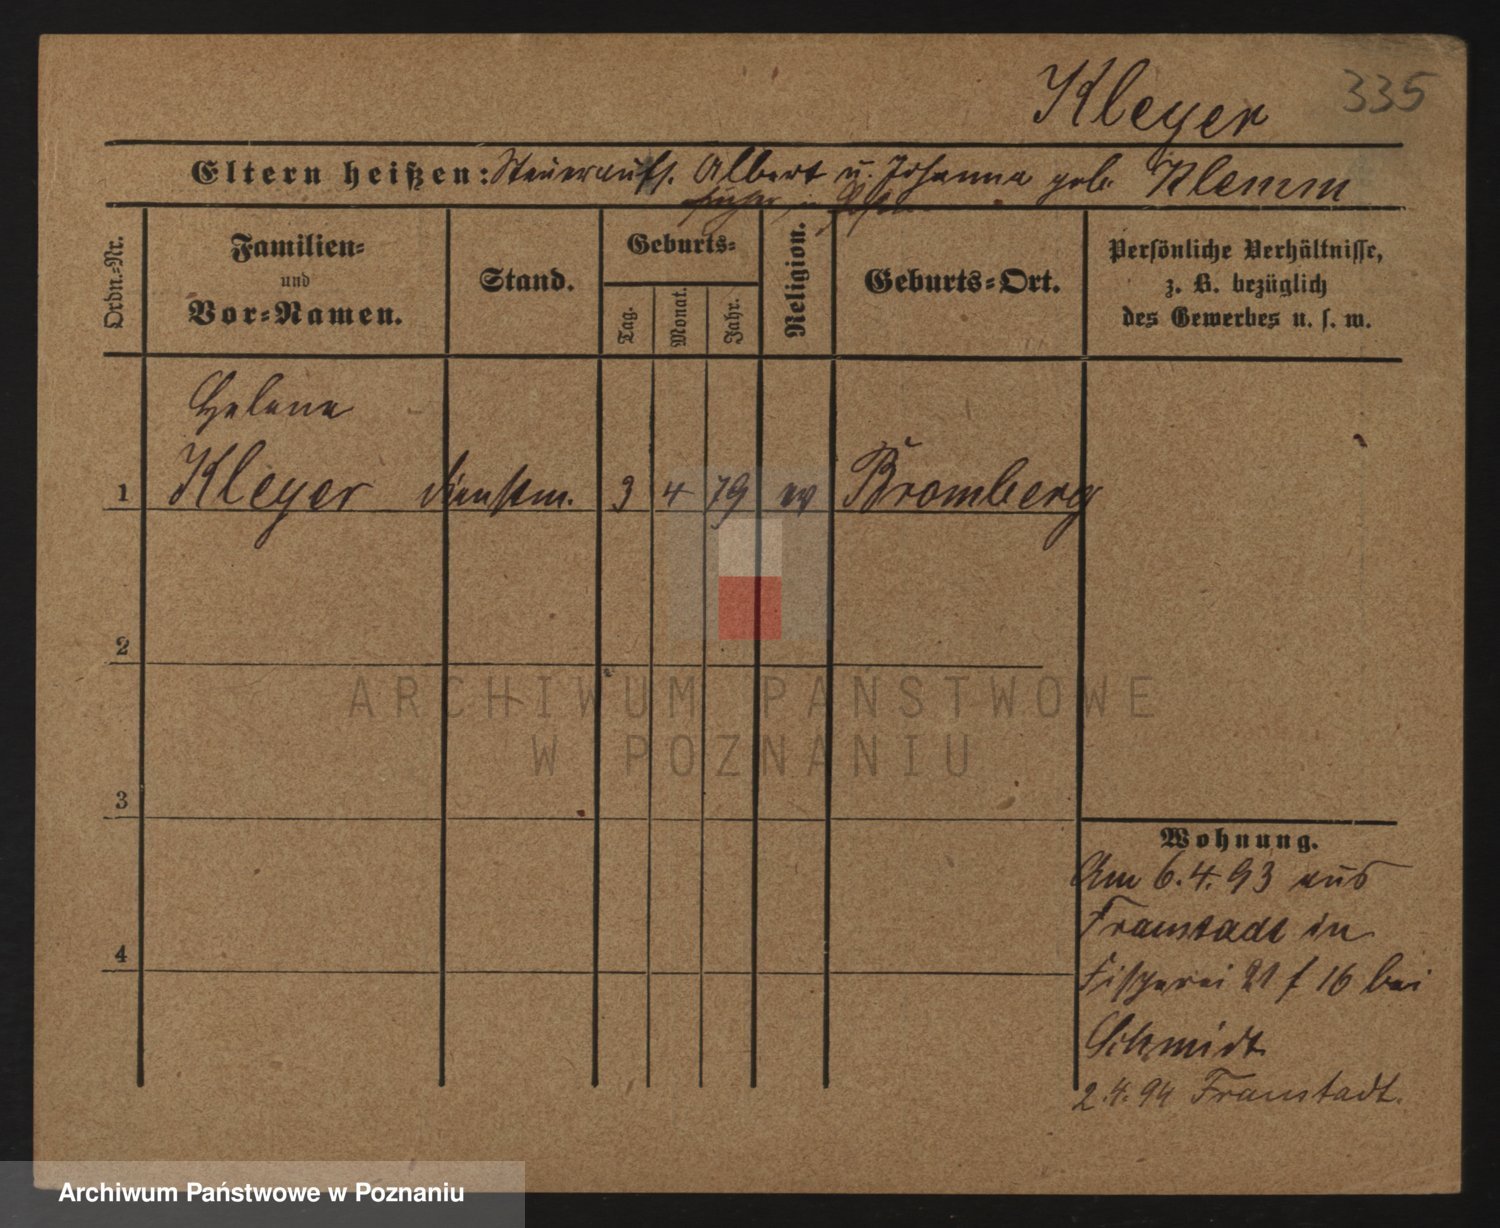 335
Kleyer
Eltern heißen: Steueraufs. Albert u. Johanna geb. Klemm
Ordn.-Nr.
Familien-
und
Vor-Namen.
Stand.
Geburts-
Tag.
Monat.
Jahr.
Religion.
Geburts-Ort.
Persönliche Verhältnisse,
z. B. bezüglich
des Gewerbes u. s. w.
Helene
1 Kleyer dienstm. 3 4 79 ev Bromberg
2
ARCHIWUM PAŃSTWOWE
W POZNANIU
3
Wohnung.
Am 6.4.93 aus
Fraustadt in
4
Fischerei 21 f 16 bei
Schmidt
2.4.94 Fraustadt.
Archiwum Państwowe w Poznaniu